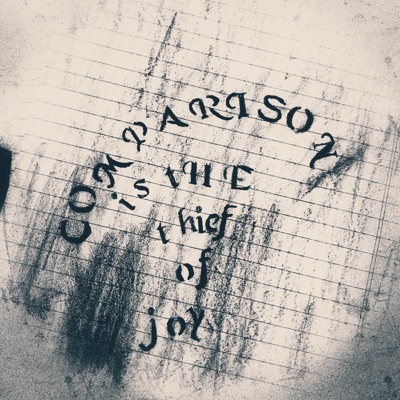 COMPARISON
is tHE
thief
of
joy